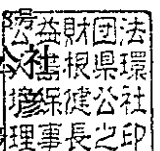 公益財団法
人島根県環
公社
境保健公社
彦
理事長之印